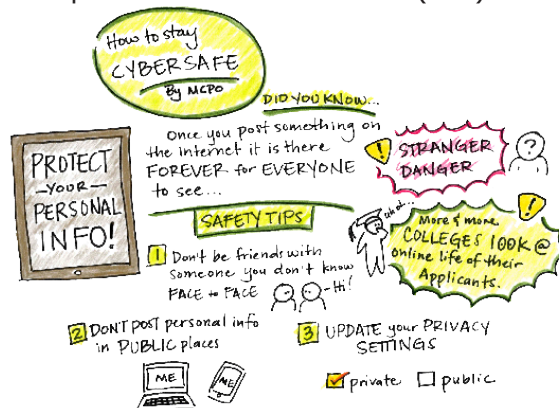 How to stay
CYBERSAFE
By MCPO
DID YOU KNOW...
Once you post something on
the internet it is there
FOREVER for EVERYONE
to see...
! STRANGER
DANGER
?
PROTECT
-YOUR-
PERSONAL
INFO!
SAFETY TIPS
uh oh...
!
More & more
COLLEGES lOOK @
online life of their
Applicants.
1 Don't be friends with
someone you don't know
FACE to FACE
-Hi!
2 DON'T POST personal info
in PUBLIC places
ME
ME
3 UPDATE your PRIVACY
SETTINGS
private public